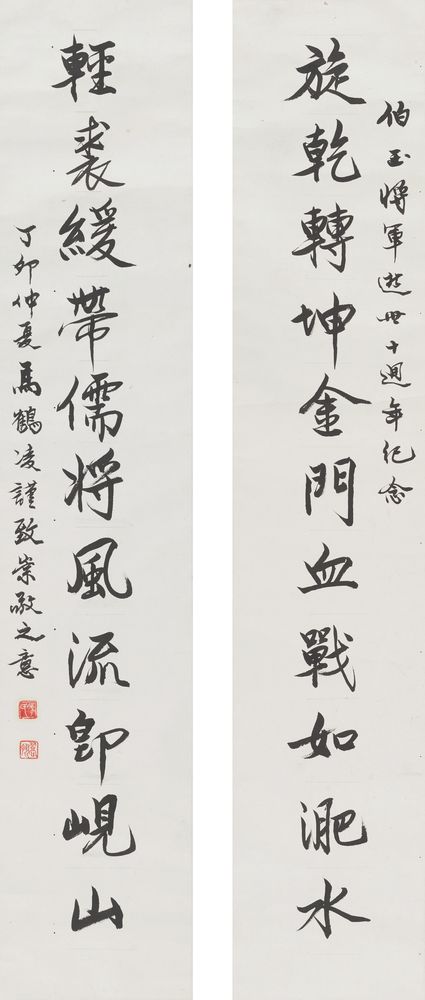 伯玉將軍逝世十週年紀念
旋乾轉坤金門血戰如淝水
輕裘緩帶儒將風流卽峴山
丁卯仲夏馬鶴凌謹致崇敬之意